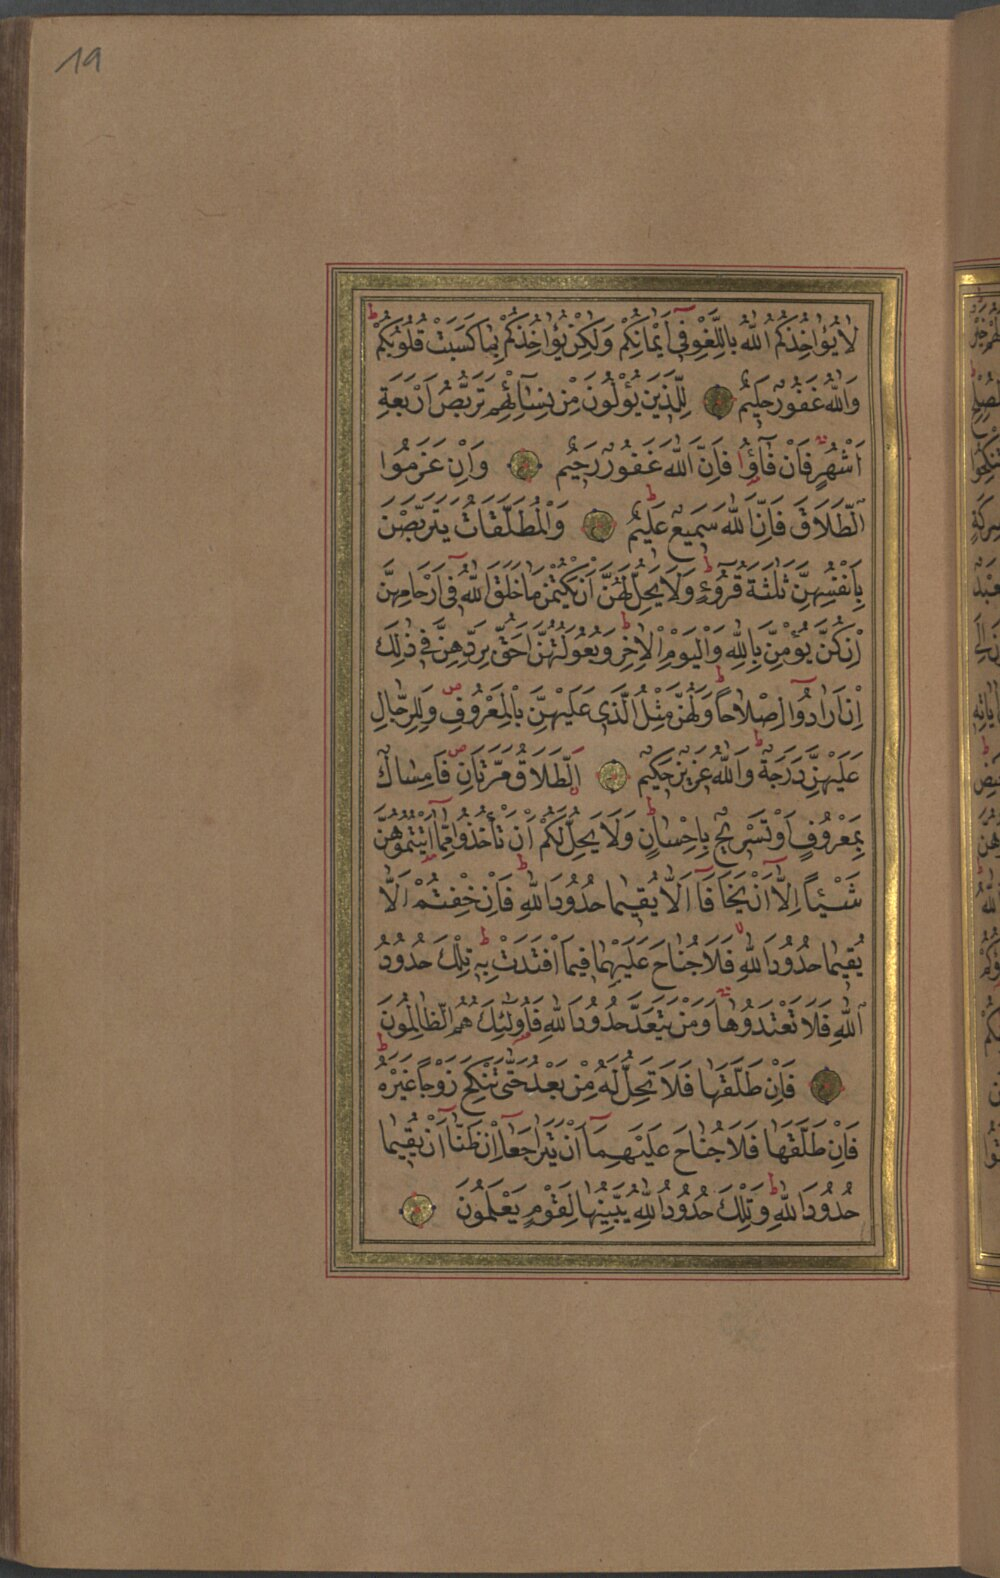 19
لَا يُؤَاخِذُكُمُ اللّٰهُ بِاللَّغْوِ فِي أَيْمَانِكُمْ وَلٰكِنْ يُؤَاخِذُكُمْ بِمَا كَسَبَتْ قُلُوبُكُمْ
وَاللّٰهُ غَفُورٌ حَلِيمٌ لِلَّذِينَ يُؤْلُونَ مِنْ نِسَائِهِمْ تَرَبُّصُ أَرْبَعَةِ
أَشْهُرٍ فَإِنْ فَآؤُا فَإِنَّ اللّٰهَ غَفُورٌ رَحِيمٌ وَإِنْ عَزَمُوا
الطَّلَاقَ فَإِنَّ اللّٰهَ سَمِيعٌ عَلِيمٌ وَالْمُطَلَّقَاتُ يَتَرَبَّصْنَ
بِأَنْفُسِهِنَّ ثَلٰثَةَ قُرُوءٍ وَلَا يَحِلُّ لَهُنَّ أَنْ يَكْتُمْنَ مَا خَلَقَ اللّٰهُ فِي أَرْحَامِهِنَّ
إِنْ كُنَّ يُؤْمِنَّ بِاللّٰهِ وَالْيَوْمِ الْاٰخِرِ وَبُعُولَتُهُنَّ أَحَقُّ بِرَدِّهِنَّ فِي ذٰلِكَ
إِنْ أَرَادُوا إِصْلَاحًا وَلَهُنَّ مِثْلُ الَّذِي عَلَيْهِنَّ بِالْمَعْرُوفِ وَلِلرِّجَالِ
عَلَيْهِنَّ دَرَجَةٌ وَاللّٰهُ عَزِيزٌ حَكِيمٌ الطَّلَاقُ مَرَّتَانِ فَإِمْسَاكٌ
بِمَعْرُوفٍ أَوْ تَسْرِيحٌ بِإِحْسَانٍ وَلَا يَحِلُّ لَكُمْ أَنْ تَأْخُذُوا مِمَّا اٰتَيْتُمُوهُنَّ
شَيْئًا إِلَّا أَنْ يَخَافَا أَلَّا يُقِيمَا حُدُودَ اللّٰهِ فَإِنْ خِفْتُمْ أَلَّا
يُقِيمَا حُدُودَ اللّٰهِ فَلَا جُنَاحَ عَلَيْهِمَا فِيمَا افْتَدَتْ بِهٖ تِلْكَ حُدُودُ
اللّٰهِ فَلَا تَعْتَدُوهَا وَمَنْ يَتَعَدَّ حُدُودَ اللّٰهِ فَأُولٰئِكَ هُمُ الظَّالِمُونَ
فَإِنْ طَلَّقَهَا فَلَا تَحِلُّ لَهُ مِنْ بَعْدُ حَتّٰى تَنْكِحَ زَوْجًا غَيْرَهُ
فَإِنْ طَلَّقَهَا فَلَا جُنَاحَ عَلَيْهِمَا أَنْ يَتَرَاجَعَا إِنْ ظَنَّا أَنْ يُقِيمَا
حُدُودَ اللّٰهِ وَتِلْكَ حُدُودُ اللّٰهِ يُبَيِّنُهَا لِقَوْمٍ يَعْلَمُونَ